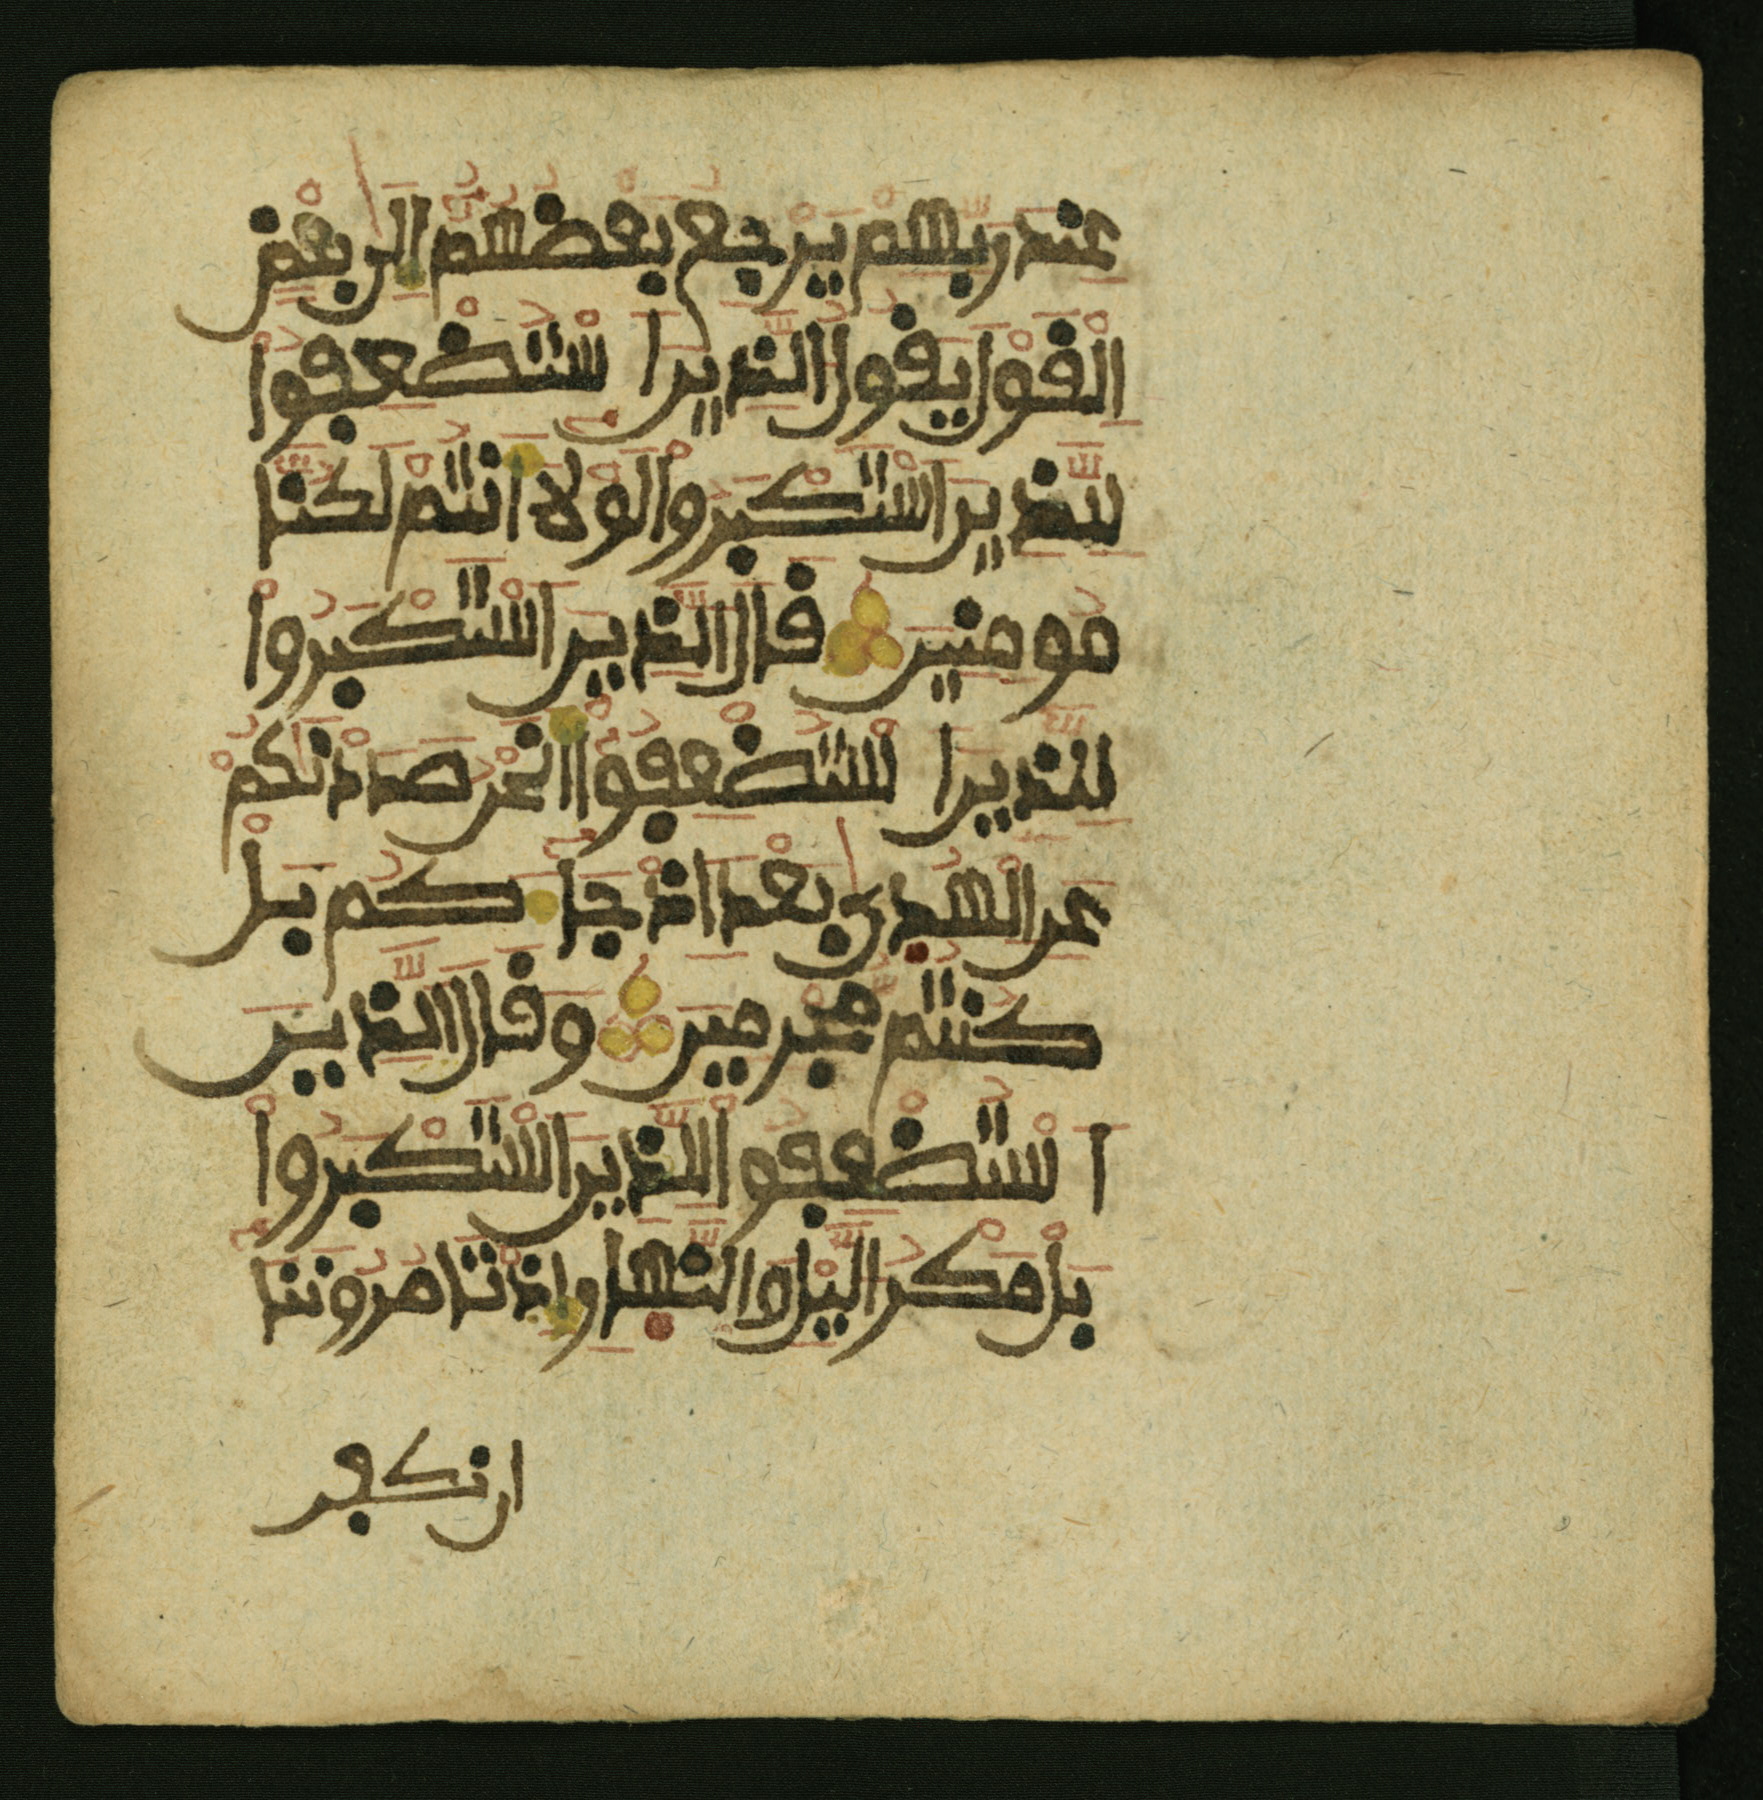 عند ربهم يرجع بعضهم الى بعض
القول يقول الذين استضعفوا
للذين استكبروا لولا انتم لكنا
مومنين قال الذين استكبروا
للذين استضعفوا انحن صددنكم
عن الهدى بعد اذ جا كم بل
كنتم مجرمين وقال الذين
استضعفوا للذين استكبروا
بل مكر اليل والنهار اذ تامروننا
ان نكفر